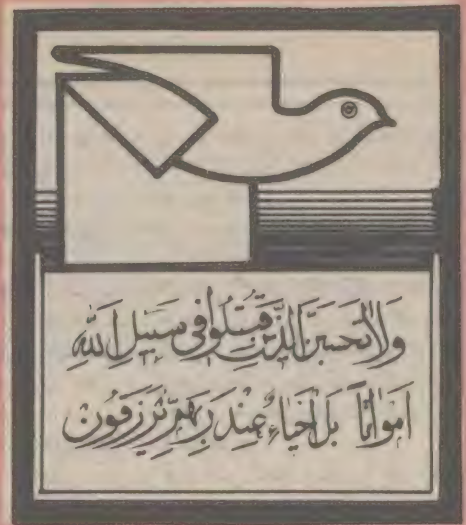 وَلَا تَحسَبَنَّ الَّذينَ قُتِلُوا فی سَبیلِ اللهِ
اَمواتاً بَل اَحیاءٌ عِندَ رَبِّهِم یُرزَقُون